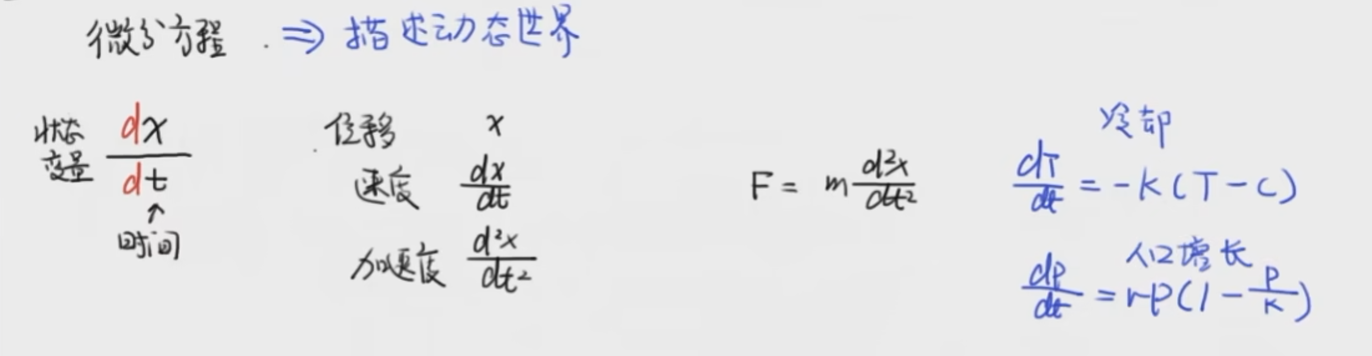 微分方程 . ⇒ 描述动态世界
状态变量 dx/dt
↑
时间
位移 x
速度 dx/dt
加速度 d²x/dt²
F = m d²x/dt²
冷却
dT/dt = -k(T-C)
人口增长
dP/dt = rP(1-P/K)